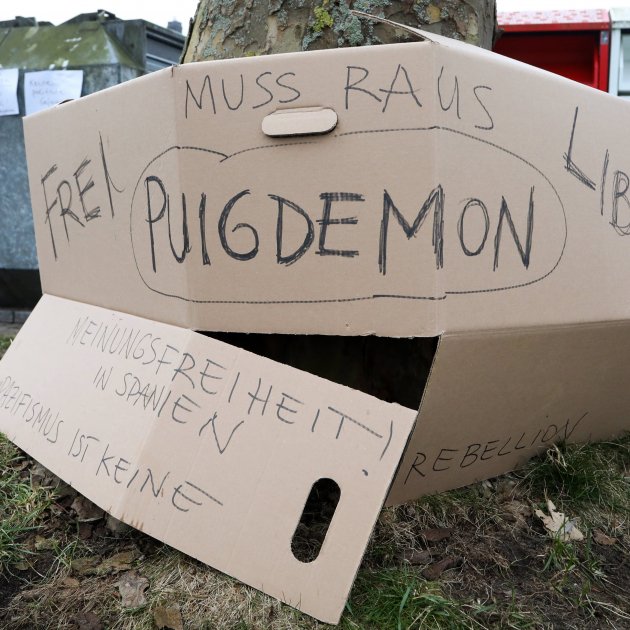 MUSS RAUS
FREI PUIGDEMON LIB
MEINUNGSFREIHEIT!
IN SPANIEN
IST KEINE
REBELLION